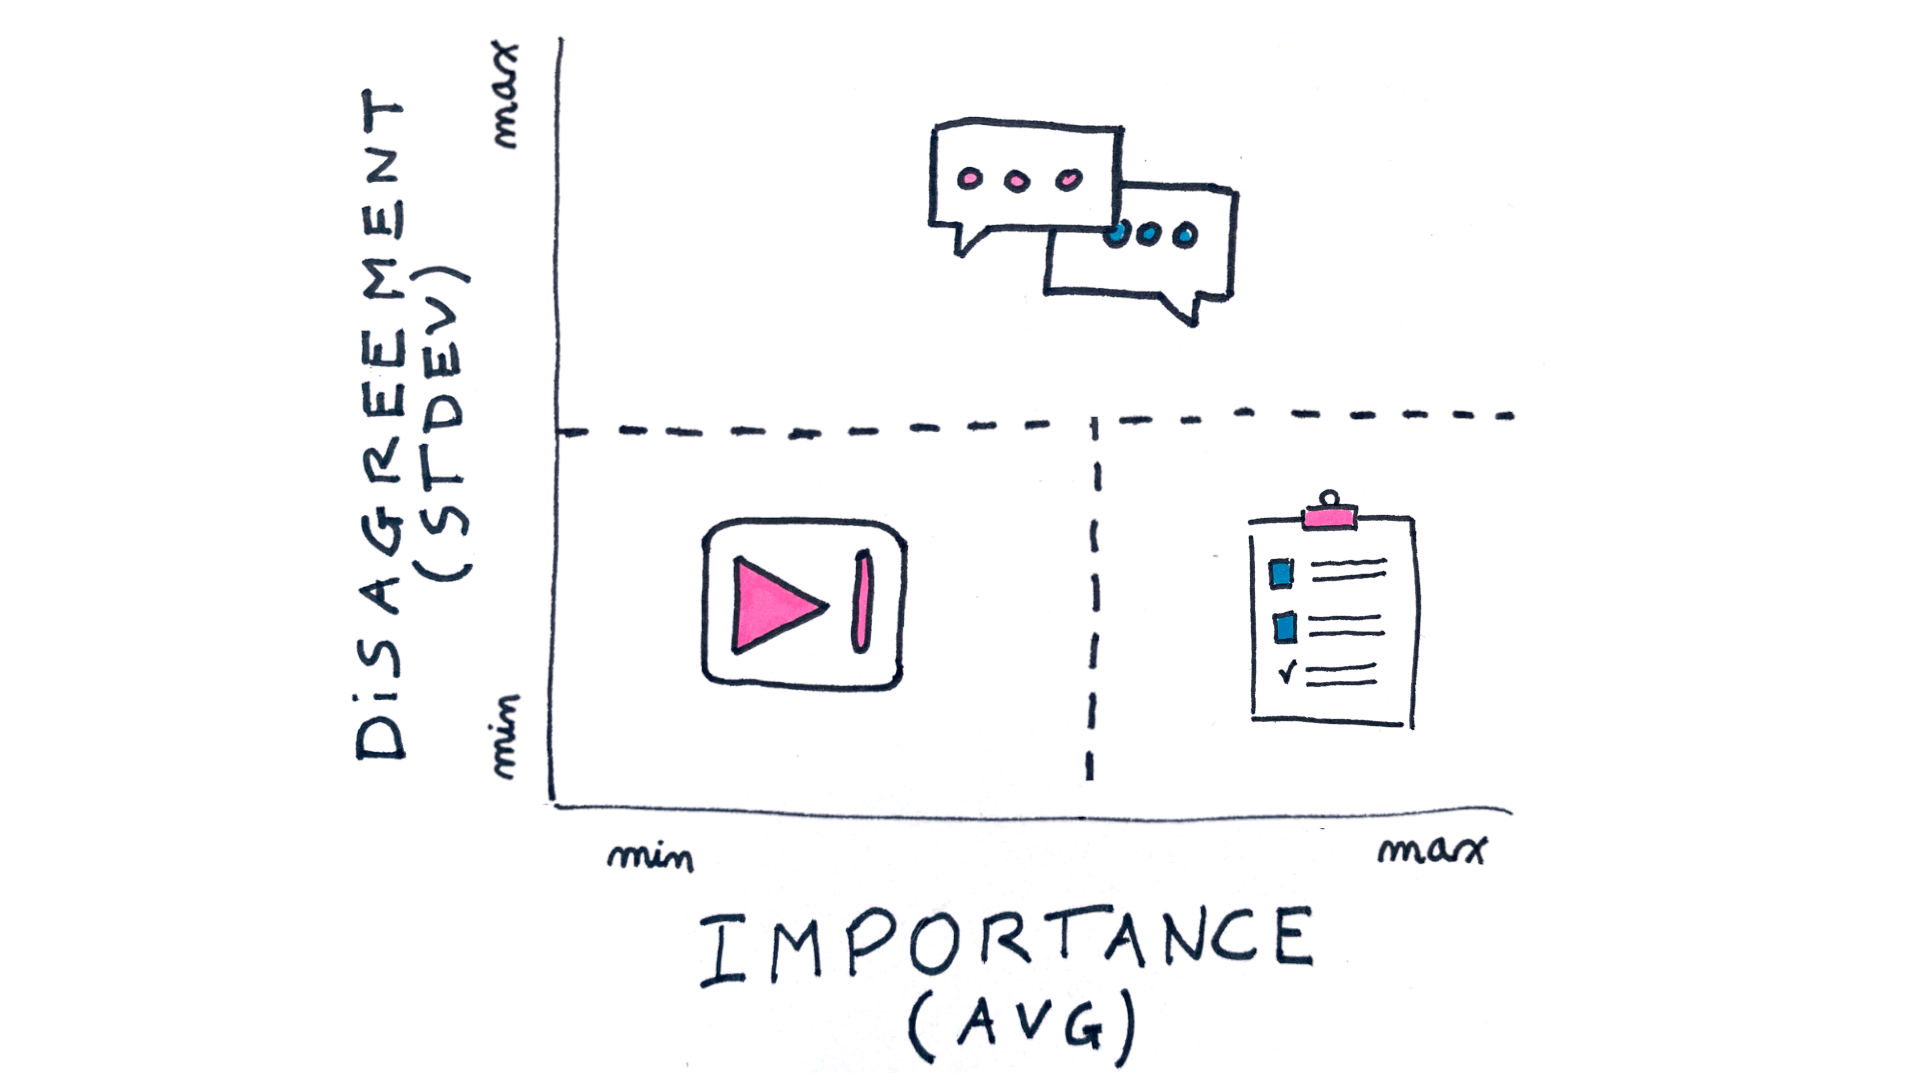 max
DiSAGREEMENT
(STDEV)
min
min
max
IMPORTANCE
(AVG)